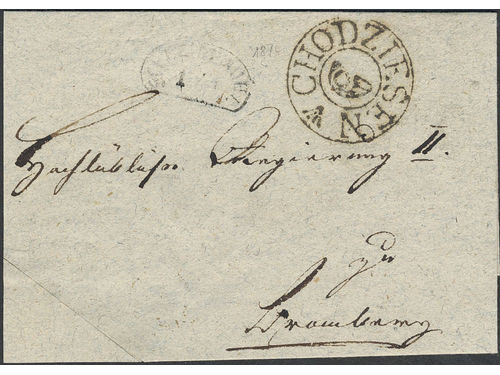 CHODZIESEN
Hochlöbliche Regierung II.
zu
Bromberg